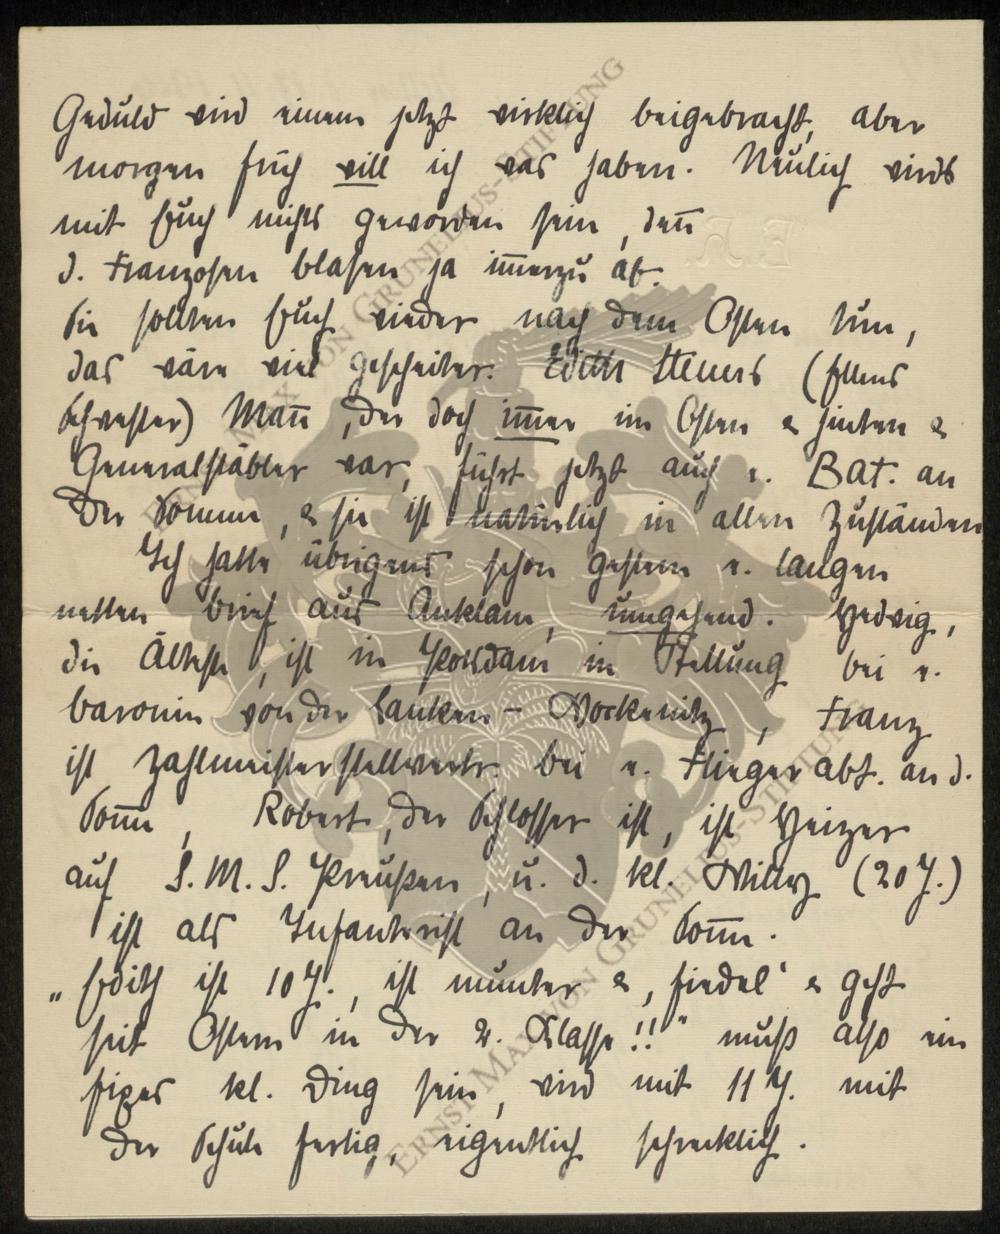 Geduld wird einem jetzt wirklich beigebracht, aber
morgen früh will ich was haben. Neulich wirds
mit Euch nichts geworden sein, deñ
d. Franzosen blasen ja im̃erzu ab.
Sie sollten Euch wieder nach dem Osten tun,
das wäre viel gescheiter. Edith Stenens (Ellens
Schwester) Mañ, der doch im̃er im Osten & hinten &
Generalstäbler war, führt jetzt auch e. Bat. an
der Somme, & sie ist natürlich in allen Zuständen
Ich hatte übrigens schon gestern e. langen
netten Brief aus Anklam, umgehend. Hedwig,
die Älteste, ist in Potsdam in Stellung bei e.
baronin von der Lanken-Wockenitz, Franz
ist Zahlmeisterstellvertr. bei e. Fliegerabt. an d.
Som̃e, Robert, der Schlosser ist, ist Heizer
auf S.M.S. Preußen, u. d. kl. Willy (20 J.)
ist als Infanterist an der Som̃e.
„Edith ist 10 J., ist munter & ‚fiedel‘ & geht
seit Ostern in der 2. Klasse!!“ muß also ein
fixes kl. Ding sein, wird mit 11 J. mit
der Schule fertig, eigentlich schrecklich.
ERNST MAX VON GRUNELIUS-STIFTUNG
ERNST MAX VON GRUNELIUS-STIFTUNG